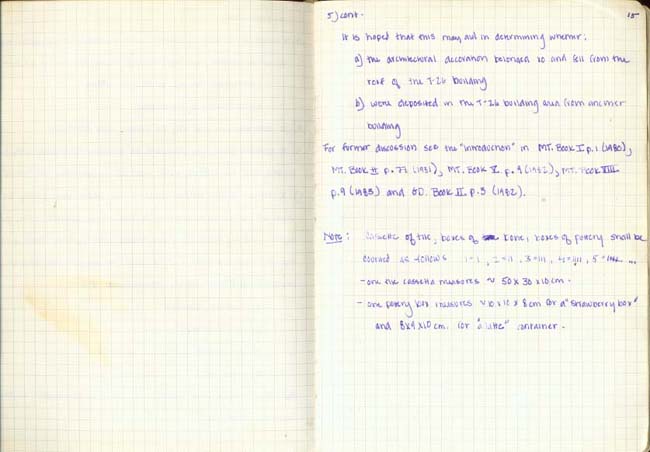 5) cont.
15
It is hoped that this may aid in determining whether:
a) the architectural decoration belonged to and fell from the
roof of the T-26 building
b) were deposited in the T-26 building area from another
building
For former discussion see the "Introduction" in MT. Book I p. 1 (1980),
MT. Book II p. 77 (1981), MT. Book V p. 9 (1982), MT. Book VIII
p. 9 (1983) and OD. Book II p. 3 (1982).
Note: Cassette of tile, boxes of bone, boxes of pottery shall be
counted as follows 1=I, 2=II, 3=III, 4=IIII, 5=
- one tile cassetta measures ~ 50 x 30 x 10 cm.
- one pottery box measures ~ 10 x 10 x 8 cm for a "strawberry box"
and 8x9x10 cm. for "a latte" container.